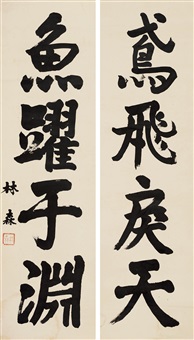 鳶飛戾天
魚躍于淵
林森